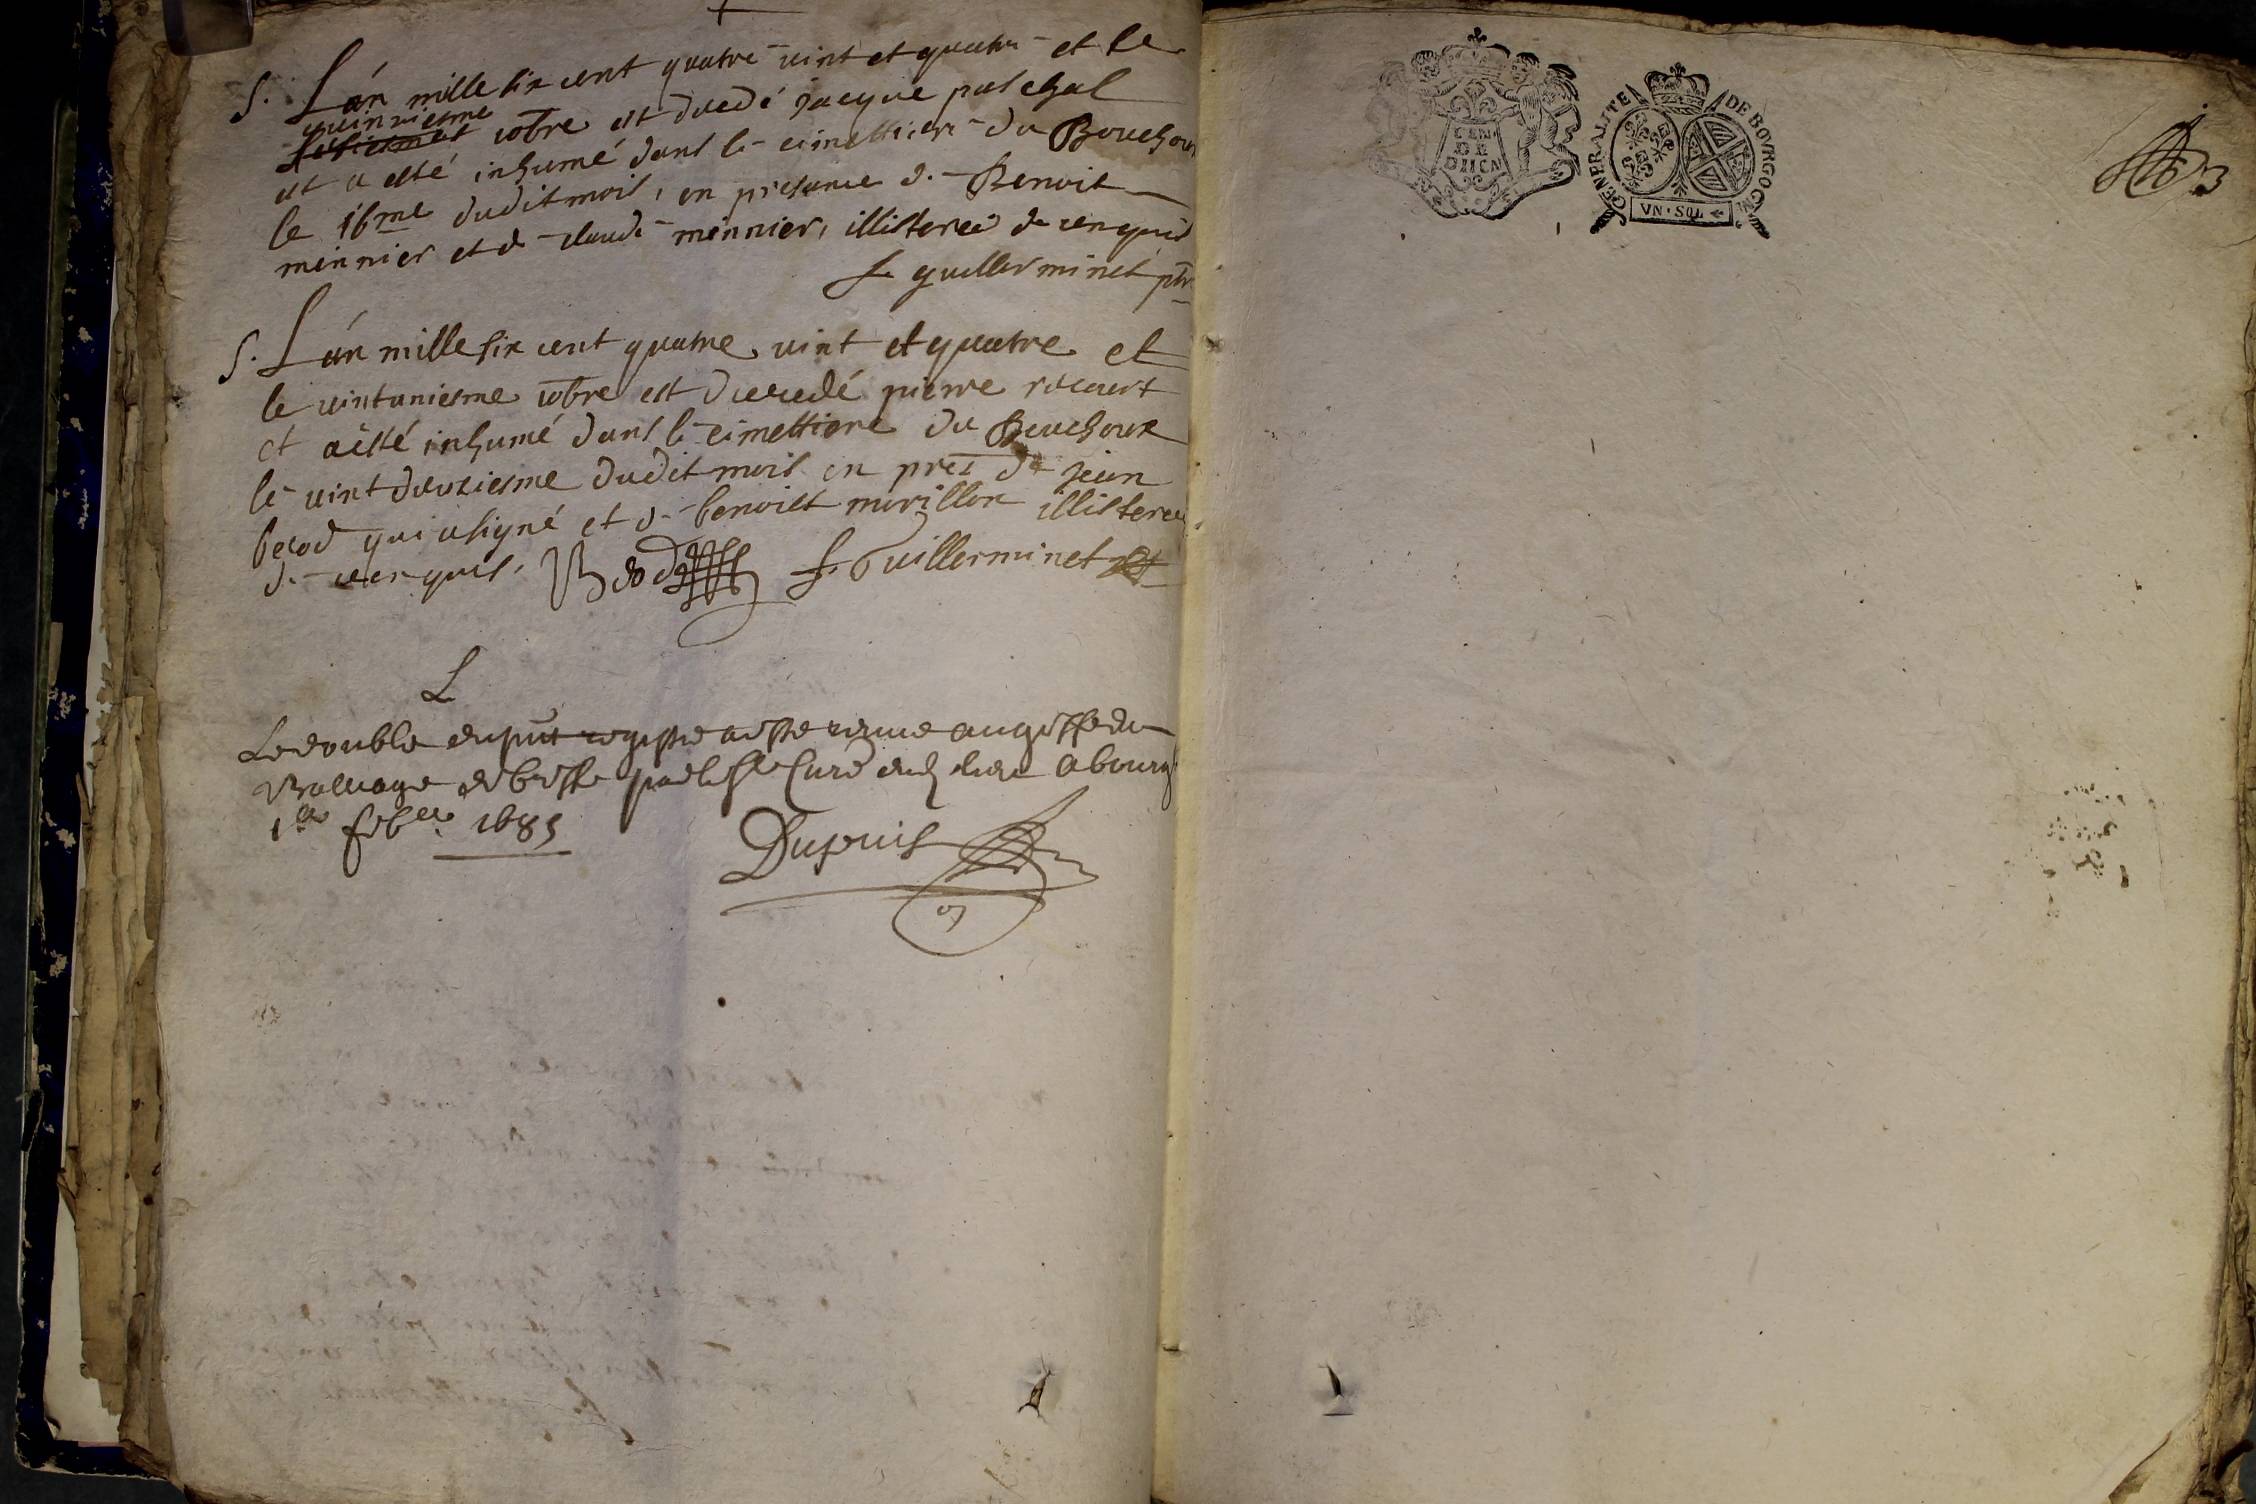 S. L'an mille six cent quatre vint et quatre et le
quinziesme
xobre est decedé jacque paschal
et a esté inhumé dans le cimettiere du Bouchoux
le 16me dudit mois, en presance de Benoit
minnier et de claude minnier, illisteres de ce enquis
f. guillerminet ptr
S. L'an mille six cent quatre vint et quatre et
le vintuniesme xobre est decedé pierre
et a esté inhumé dans le cimettiere du Bouchoux
le vint deuxiesme dudit mois en pres de jean
becod qui a signé et de benoist morillon illisteres
de ce enquis. Becod f. Guillerminet
L
Le double du pnt registre a esté remis au greffe du
Balliage de bresse par le Sr Curé dud lieu a bourg
1er feber 1685
Dupuis
GEN
DE
DIION
GENERALITE DE BOVRGOGNE
VN SOL